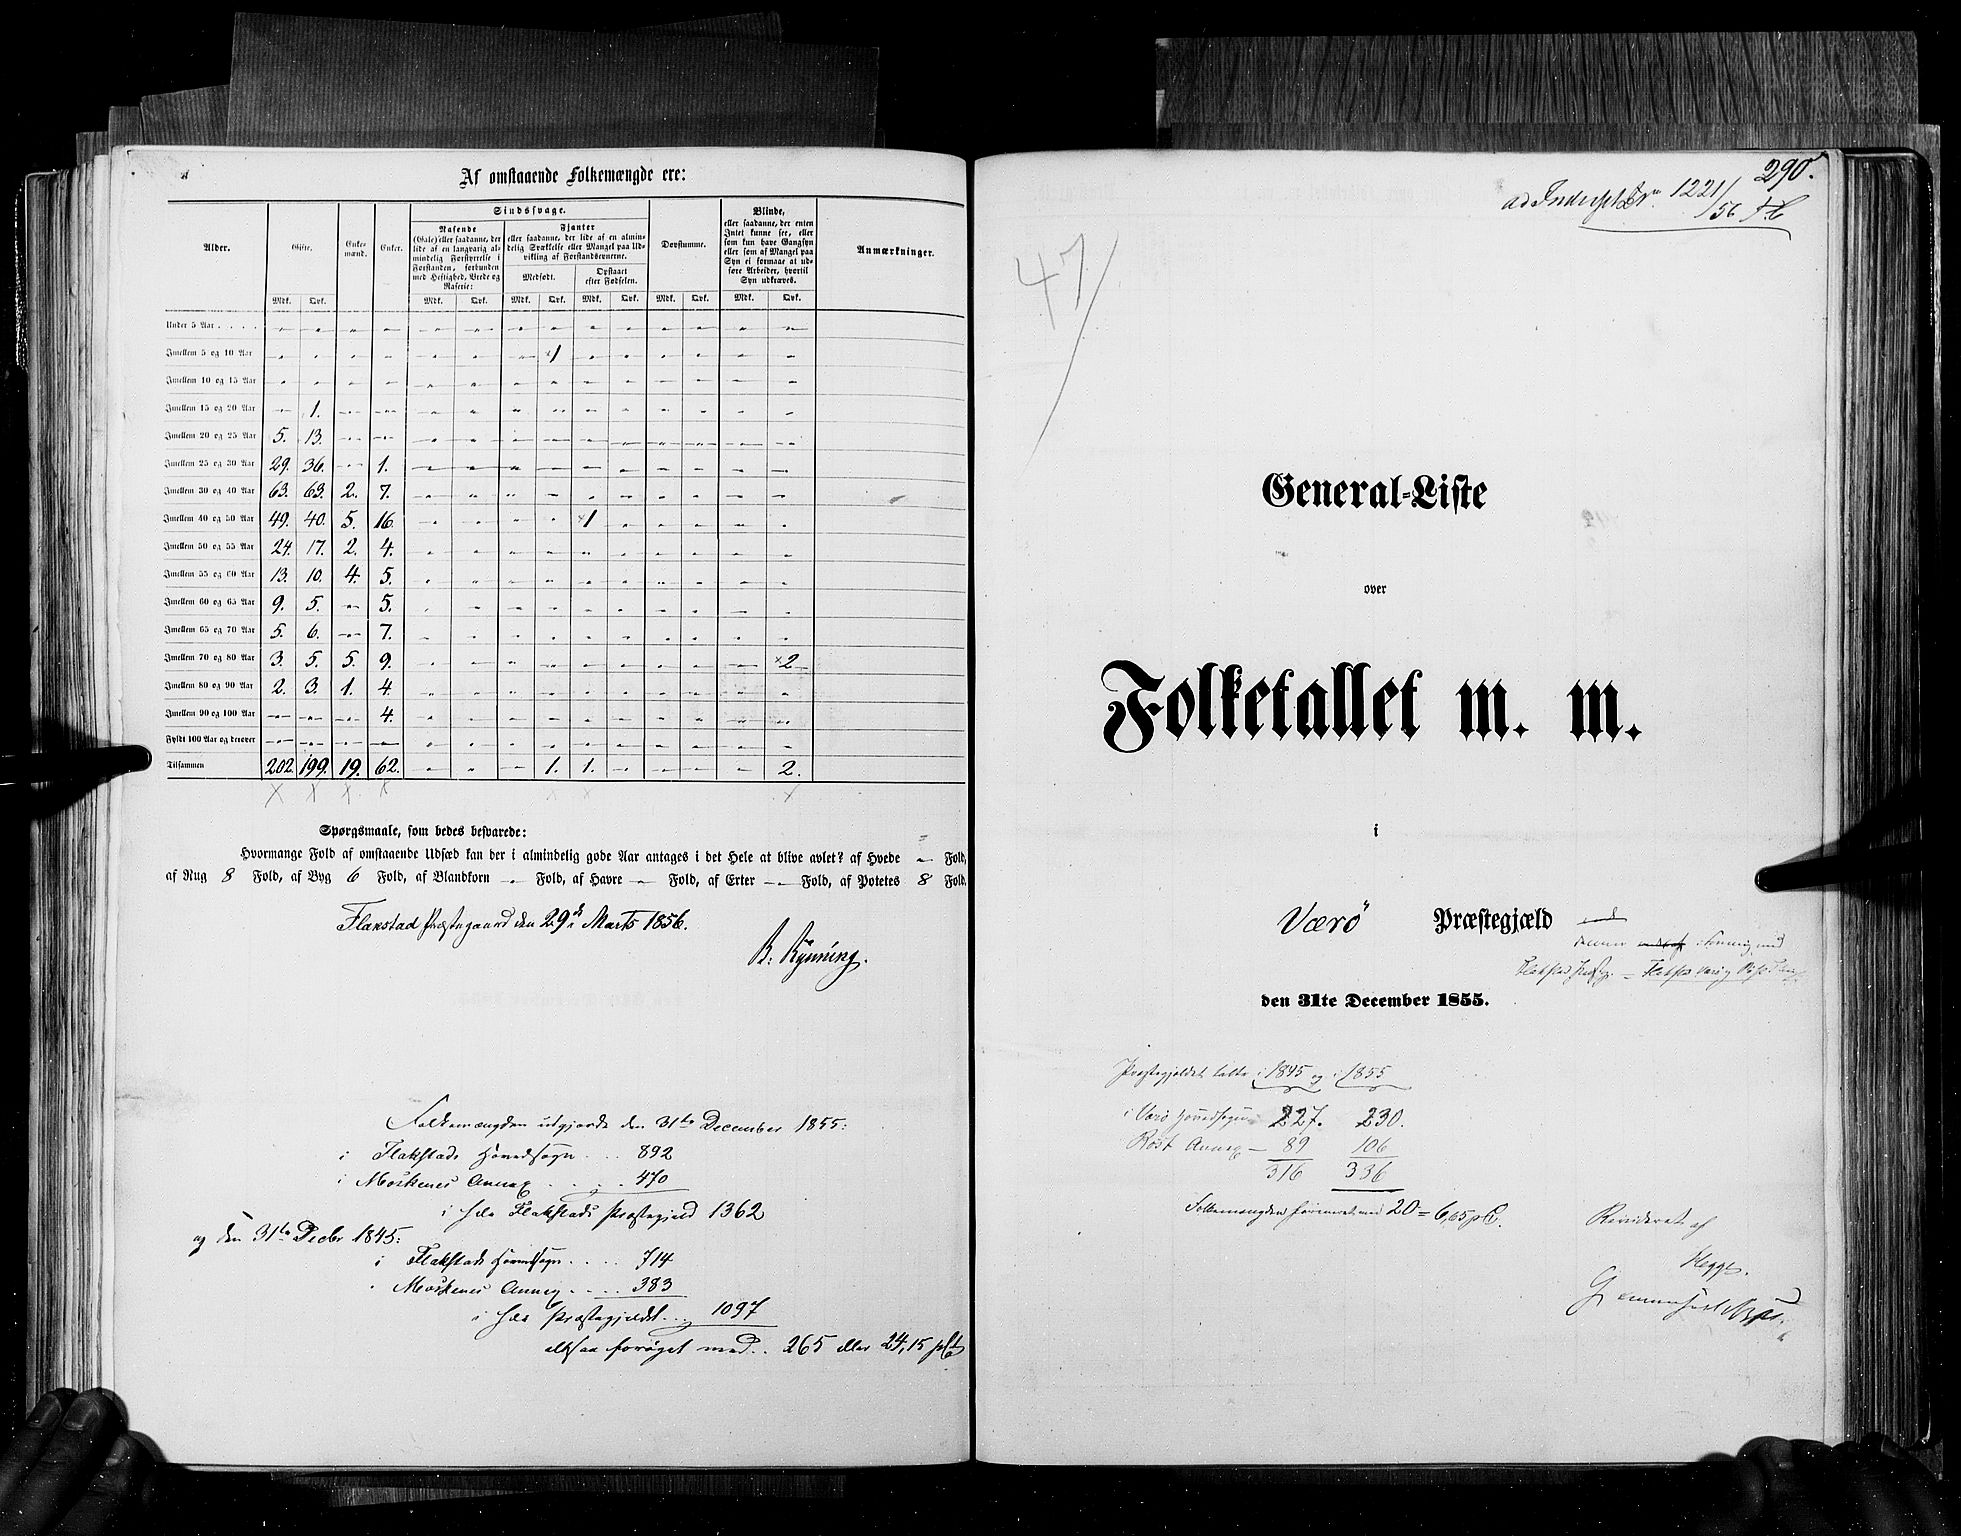 Af omstaaende Folkemængde ere:
Alder. Gifte. Enke- mænd. Enker. Sindssvage. Døvstumme. Blinde, Anmærkninger.
Rasende (Gale) eller saadanne, der lide af en langvarig almindelig Forstyrrelse i Forstanden, forbunden med Heftighed, Vrede og Raserie:
Fjanter eller saadanne, der lide af en almindelig Svækkelse eller Mangel paa Udvikling af Forstandsevnerne.
Medfødt. Opstaaet efter Fødselen.
eller saadanne, der enten Intet kunne see, eller som kun have Gangsyn eller som af Mangel paa Syn ei formaae at udføre Arbeider, hvortil Syn udkræves.
Mdk. Qvk. Mdk. Qvk. Mdk. Qvk. Mdk. Qvk. Mdk. Qvk. Mdk. Qvk.
Under 5 Aar . . . .
Imellem 5 og 10 Aar 1
Imellem 10 og 15 Aar
Imellem 15 og 20 Aar 1.
Imellem 20 og 25 Aar 5. 13.
Imellem 25 og 30 Aar 29. 36. 1.
Imellem 30 og 40 Aar 63. 63. 2. 7.
Imellem 40 og 50 Aar 49. 40. 5. 16. 1
Imellem 50 og 55 Aar 24. 17. 2. 4.
Imellem 55 og 60 Aar 13. 10. 4. 5.
Imellem 60 og 65 Aar 9. 5. 5.
Imellem 65 og 70 Aar 5. 6. 7.
Imellem 70 og 80 Aar 3. 5. 5. 9. 2
Imellem 80 og 90 Aar 2. 3. 1. 4.
Imellem 90 og 100 Aar 4.
Fyldt 100 Aar og derover
Tilsammen 202. 199. 19. 62. 1. 1. 2.
Spørgsmaale, som bedes besvarede:
Hvormange Fold af omstaaende Udsæd kan der i almindelig gode Aar antages i det Hele at blive avlet? af Hvede – Fold,
af Rug 8 Fold, af Byg 6 Fold, af Blandkorn – Fold, af Havre – Fold, af Erter – Fold, af Potetes 8 Fold.
Flakstad Præstegaard den 29de Marts 1856.
B. Rynning.
Folkemængden udgjorde den 31te December 1855:
i Flakstads Hovedsogn . . . 892
i Moskenes Annex . . . . 470
i hele Flakstads Præstegjeld 1362
og den 31te Decbr 1845:
i Flakstads Hovedsogn . . . . 714
Moskenes Annex . . . . 383
i hele Præstegjeldet . . . 1097
altsaa forøget med . . 265 eller 24,15 pCt
290.
ad Indenrigs Dep. 1221/56
47
General-Liste
over
Folketallet m. m.
i
Værö Præstegjæld
den 31te December 1855.
Præstegjeldet talte i 1845 og i 1855
i Værö Hovedsogn 227. 230.
Röst Annex – 89 106
316 336
Folkemængden forøget med 20 = 6,65 pCt.
Revideret af
Hegge.